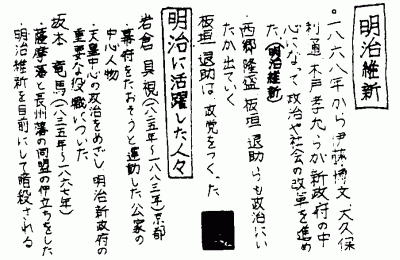 明治維新
・一八六八年から伊藤博文、大久保
利通、木戸孝允らが新政府の中
心になって政治や社会の改革を進め
た。(明治維新)
・西郷隆盛、板垣退助らも政治にい
たが出ていく
板垣退助は政党をつくった
明治に活躍した人々
岩倉具視(一八二五年～一八八三年)京都
幕府をたおそうと運動した公家の
中心人物
・天皇中心の政治をめざし明治新政府の
重要な役職についた
坂本竜馬(一八三五年～一八六七年)
・薩摩藩と長州藩の同盟の仲立ちをした
・明治維新を目前にして暗殺される